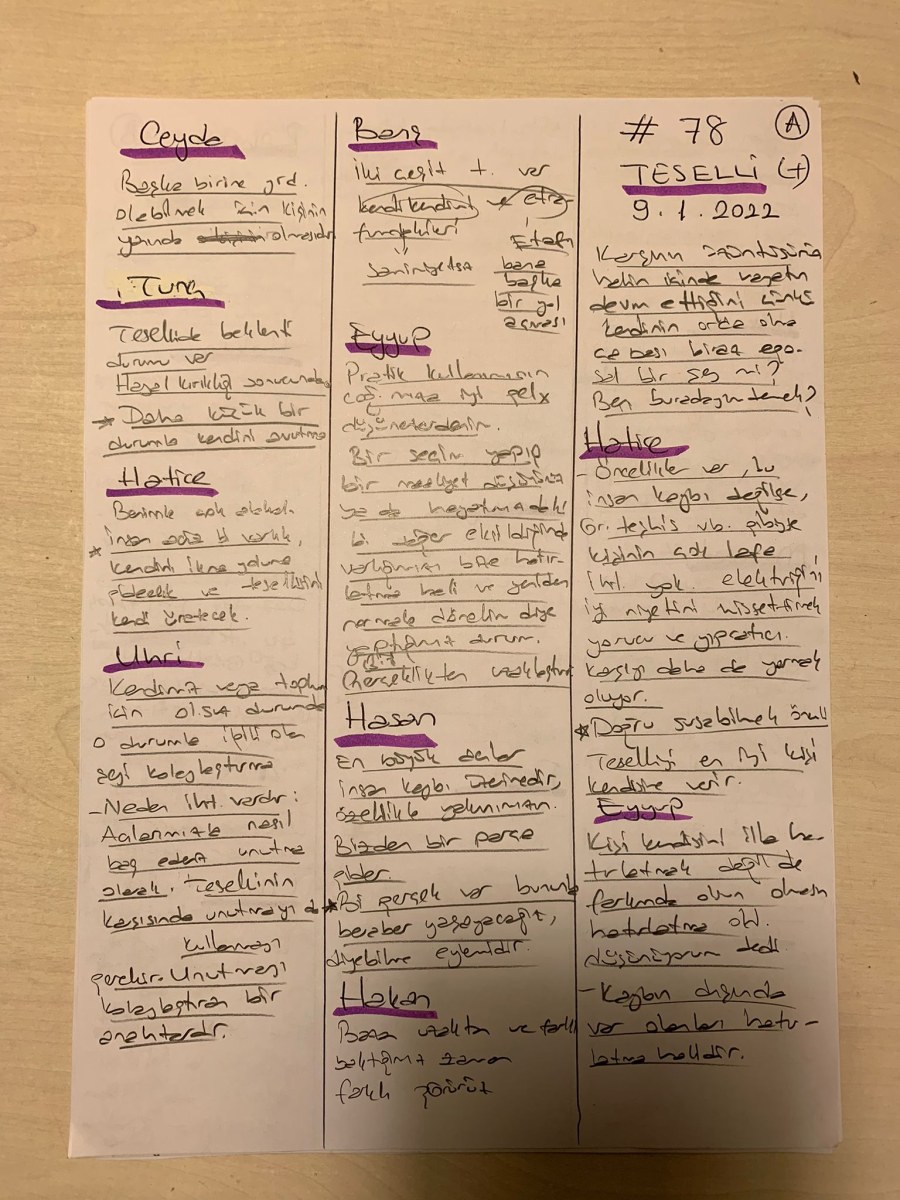 Ceyda
Başka birine yrd.
olabilmek için kişinin
yanında olmasıdır
Tuna
Tesellide beklenti
durumu var
Hayal kırıklığı sonucunda
* Daha küçük bir
durumla kendini avutma
Hatice
Benimle çok alakalı.
* insan aciz bi varlık,
kendini ikna yoluna
gidecek ve tesellisini
kendi üretecek.
Uhri
Kendimiz veya toplum
için olsun durumda
o durumla ilgili olan
şeyi kolaylaştırma
- Neden iht. vardır:
Acılarımızla nasıl
baş ederiz unutma
olarak. Tesellinin
karşısında unutmayı da
kullanmayı
gerekir. Unutmayı
kolaylaştıran bir
anahtardır.
Barış
İki çeşit t. var
kendi kendini ve etra-
fındakileri
samimiyetsiz
Etrafın
bana
başka
bir yol
açması
Eyyup
Pratik kullanımının
çoğ. maz iyi gelx
düşünenlerdenim.
Bir seçim yapıp
bir maaliyet düştüğünü
ya da hayatımızdaki
bi değer eksildiğinde
varlığımızı bize hatır-
latma hali ve yeniden
normale dönelim diye
yaptığımız durum.
Gerçeklikten uzaklaştırır
Hasan
En büyük acılar
insan kaybı üzerinedir,
özellikle yakınımızın.
Bizden bir parça
gider.
* Bi gerçek var bununla
beraber yaşayacağız,
diyebilme eylemidir.
Hakan
Bazen uzaktan ve farklı
baktığımız zaman
farklı görürüz
# 78 A
TESELLİ (+)
9.1.2022
Karşının üzüntüsünü
halin içinde hayatın
devam ettiğini çünkü
kendinin orda olma
çabası biraz ego-
sal bir şey mi?
Ben buradayım demek?
Hatice
- Öncelikler var, bu
insan kaybı değilse,
Ör. teşhis vb. gibiyse
kişinin çok lafa
iht. yok elektriğini
iyi niyetini hissettirmek
yorucu ve yıpratıcı.
karşıyı daha da yormak
oluyor.
* Doğru susabilmek önemli
Teselliyi en iyi kişi
kendine verir.
Eyyup
Kişi kendisini illa ha-
tırlatmak değil de
farkında olsun olmasın
hatırlatma old.
düşünüyorum dedi.
- Kaybın dışında
var olanları hatır-
latma halidir.